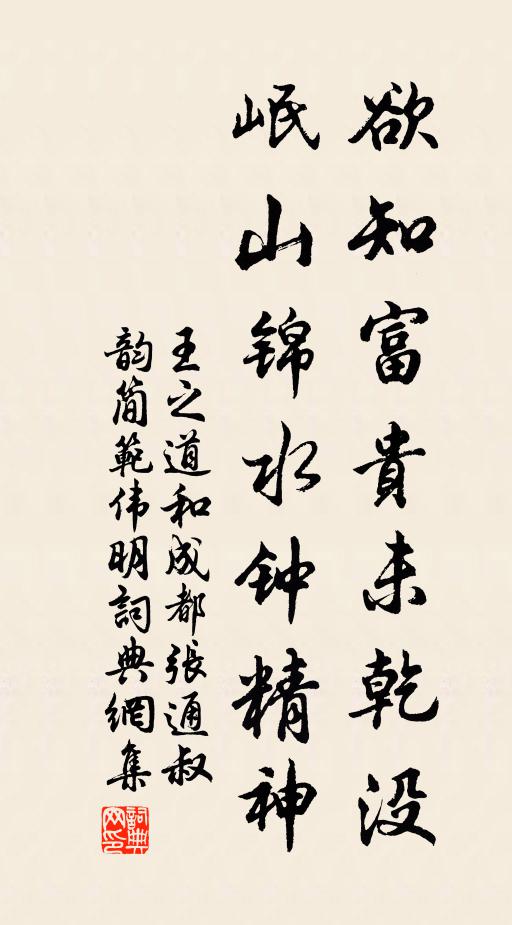 欲知富貴未乾没
岷山锦水钟精神
王之道和成都張通叔
韵简範伟明詞典網集
詞典网印